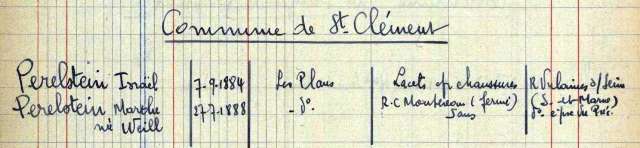 Commune de St. Clément
Perelstein Israël 7-9-1884 Les Plans Lacets pr chaussures R. Vulaines s/ Seine
Perelstein Marthe 27.7.1888 - do - R.C Montereau (fermé) (S. et Marne)
né Weill Sans do